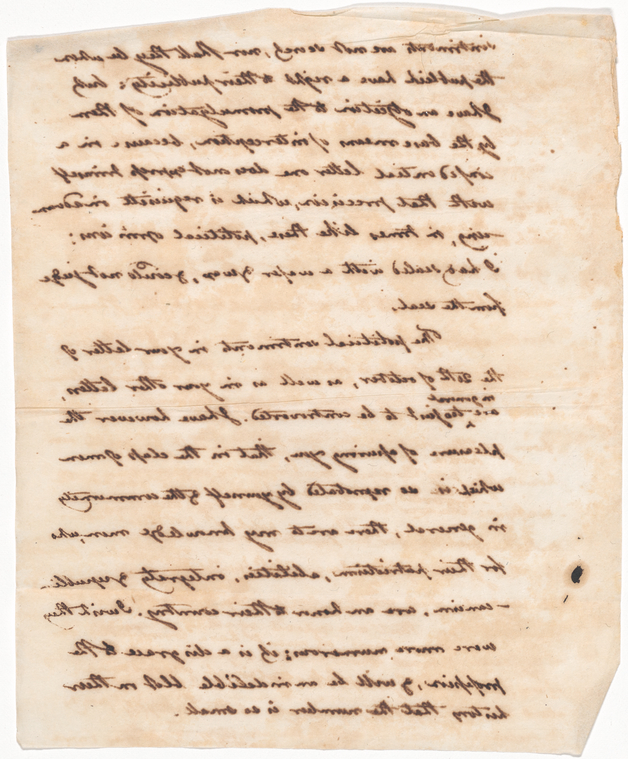 sentiments are not seemly, nor shall they be when
the publick have a right to their publicity; but
I have an objection to the promulgation of them
by the base means of interception, because in a
confidential letter one does not express himself
with that precision, which is requisite in
-ing, in times like these, political opinions:
I had sealed with a wafer & wax, & could not judge
from the seal.
The political sentiments in your letter of
the 20th of october, as well as in your other letters,
in general
are too just to be controverted. I have however the
pleasure of assuring you, that in the class of men
which is so reprobated by yourself & the community
in general, there are to my knowledge men, who
for their patriotism, abilities, integrity & republi-
-canism, are an honor to their country. I wish they
were more numerous; it is a disgrace to the
profession, & will be an indelible blot on their
history that the number is so small.